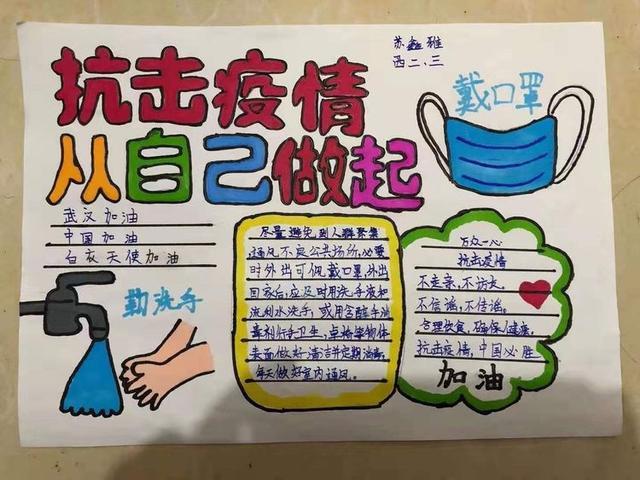 苏鑫雅
西二、三
抗击疫情
从自己做起
戴口罩
武汉加油
中国加油
白衣天使加油
勤洗手
尽量避免到人群聚集
通风不良公共场所,必要
时外出可佩戴口罩,外出
回家后,应及时用洗手液和
流动水洗手,或用含醇手消
毒剂行手卫生,桌椅等物体
表面做好清洁并定期消毒,
每天做好室内通风。
万众一心
抗击疫情
不走亲,不访友。
不信谣,不传谣。
合理饮食,确保健康。
抗击疫情,中国必胜
加油